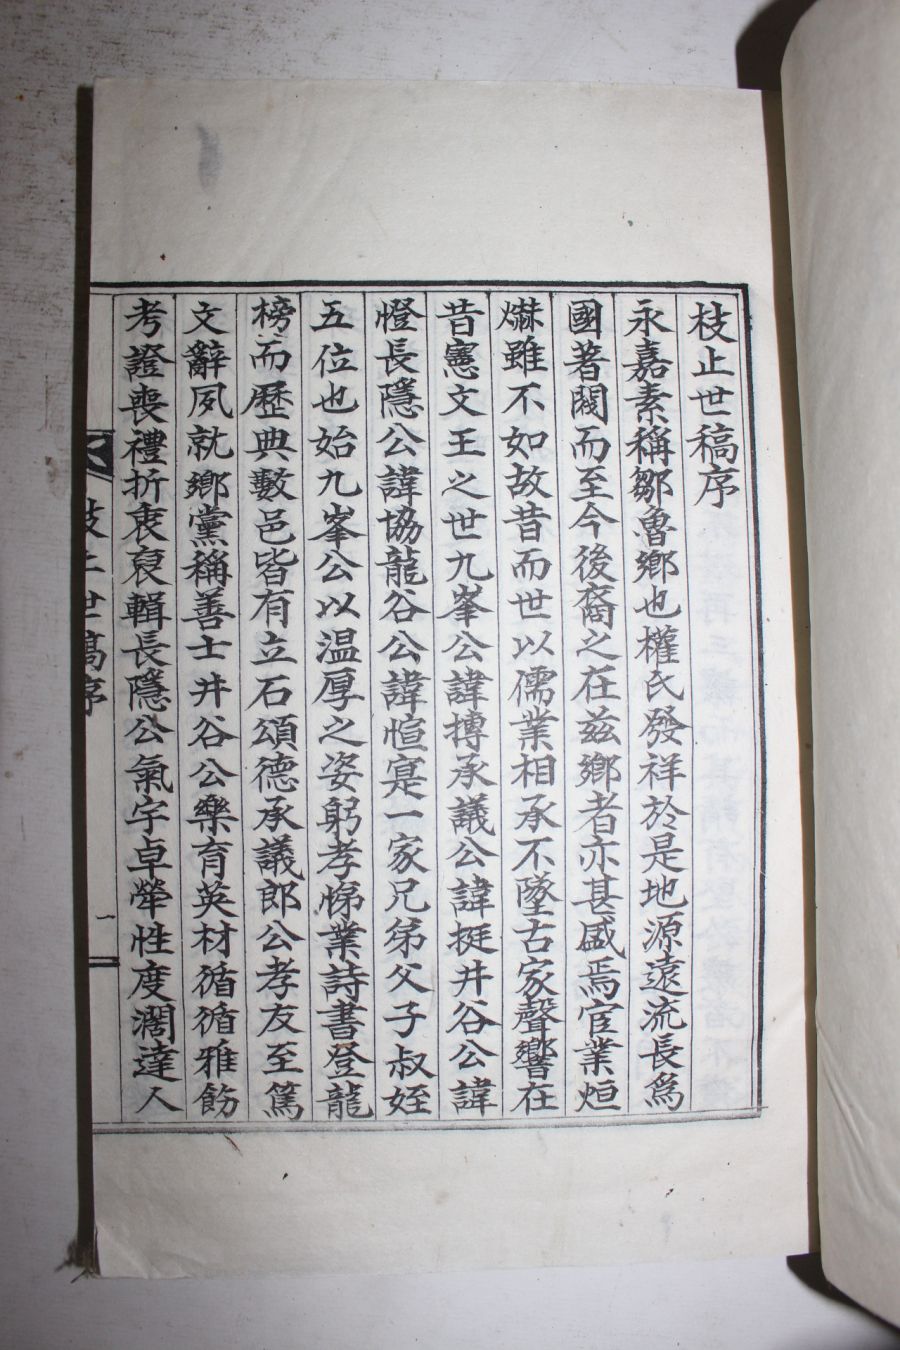 枝止世稿序
永嘉素稱鄒魯鄕也權氏發祥於是地源遠流長爲
國著閥而至今後裔之在玆鄕者亦甚盛焉宦業烜
爀雖不如故昔而世以儒業相承不墜古家聲響在
昔憲文王之世九峯公諱摶承議公諱挺井谷公諱
憕長隱公諱協龍谷公諱愃寔一家兄弟父子叔姪
五位也始九峯公以温厚之姿躬孝悌業詩書登龍
榜而歷典數邑皆有立石頌德承議郎公孝友至篤
文辭夙就鄕黨稱善士井谷公樂育英材循循雅飭
考證喪禮折衷裒輯長隱公氣宇卓犖性度濶達人
枝止世稿序
一